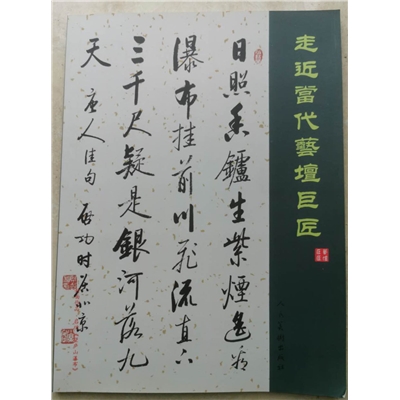 走近當代藝壇巨匠
人民美術出版社
日照香鑪生紫煙遙看
瀑布挂前川飛流直下
三千尺疑是銀河落九
天 唐人佳句 啟功时居北京